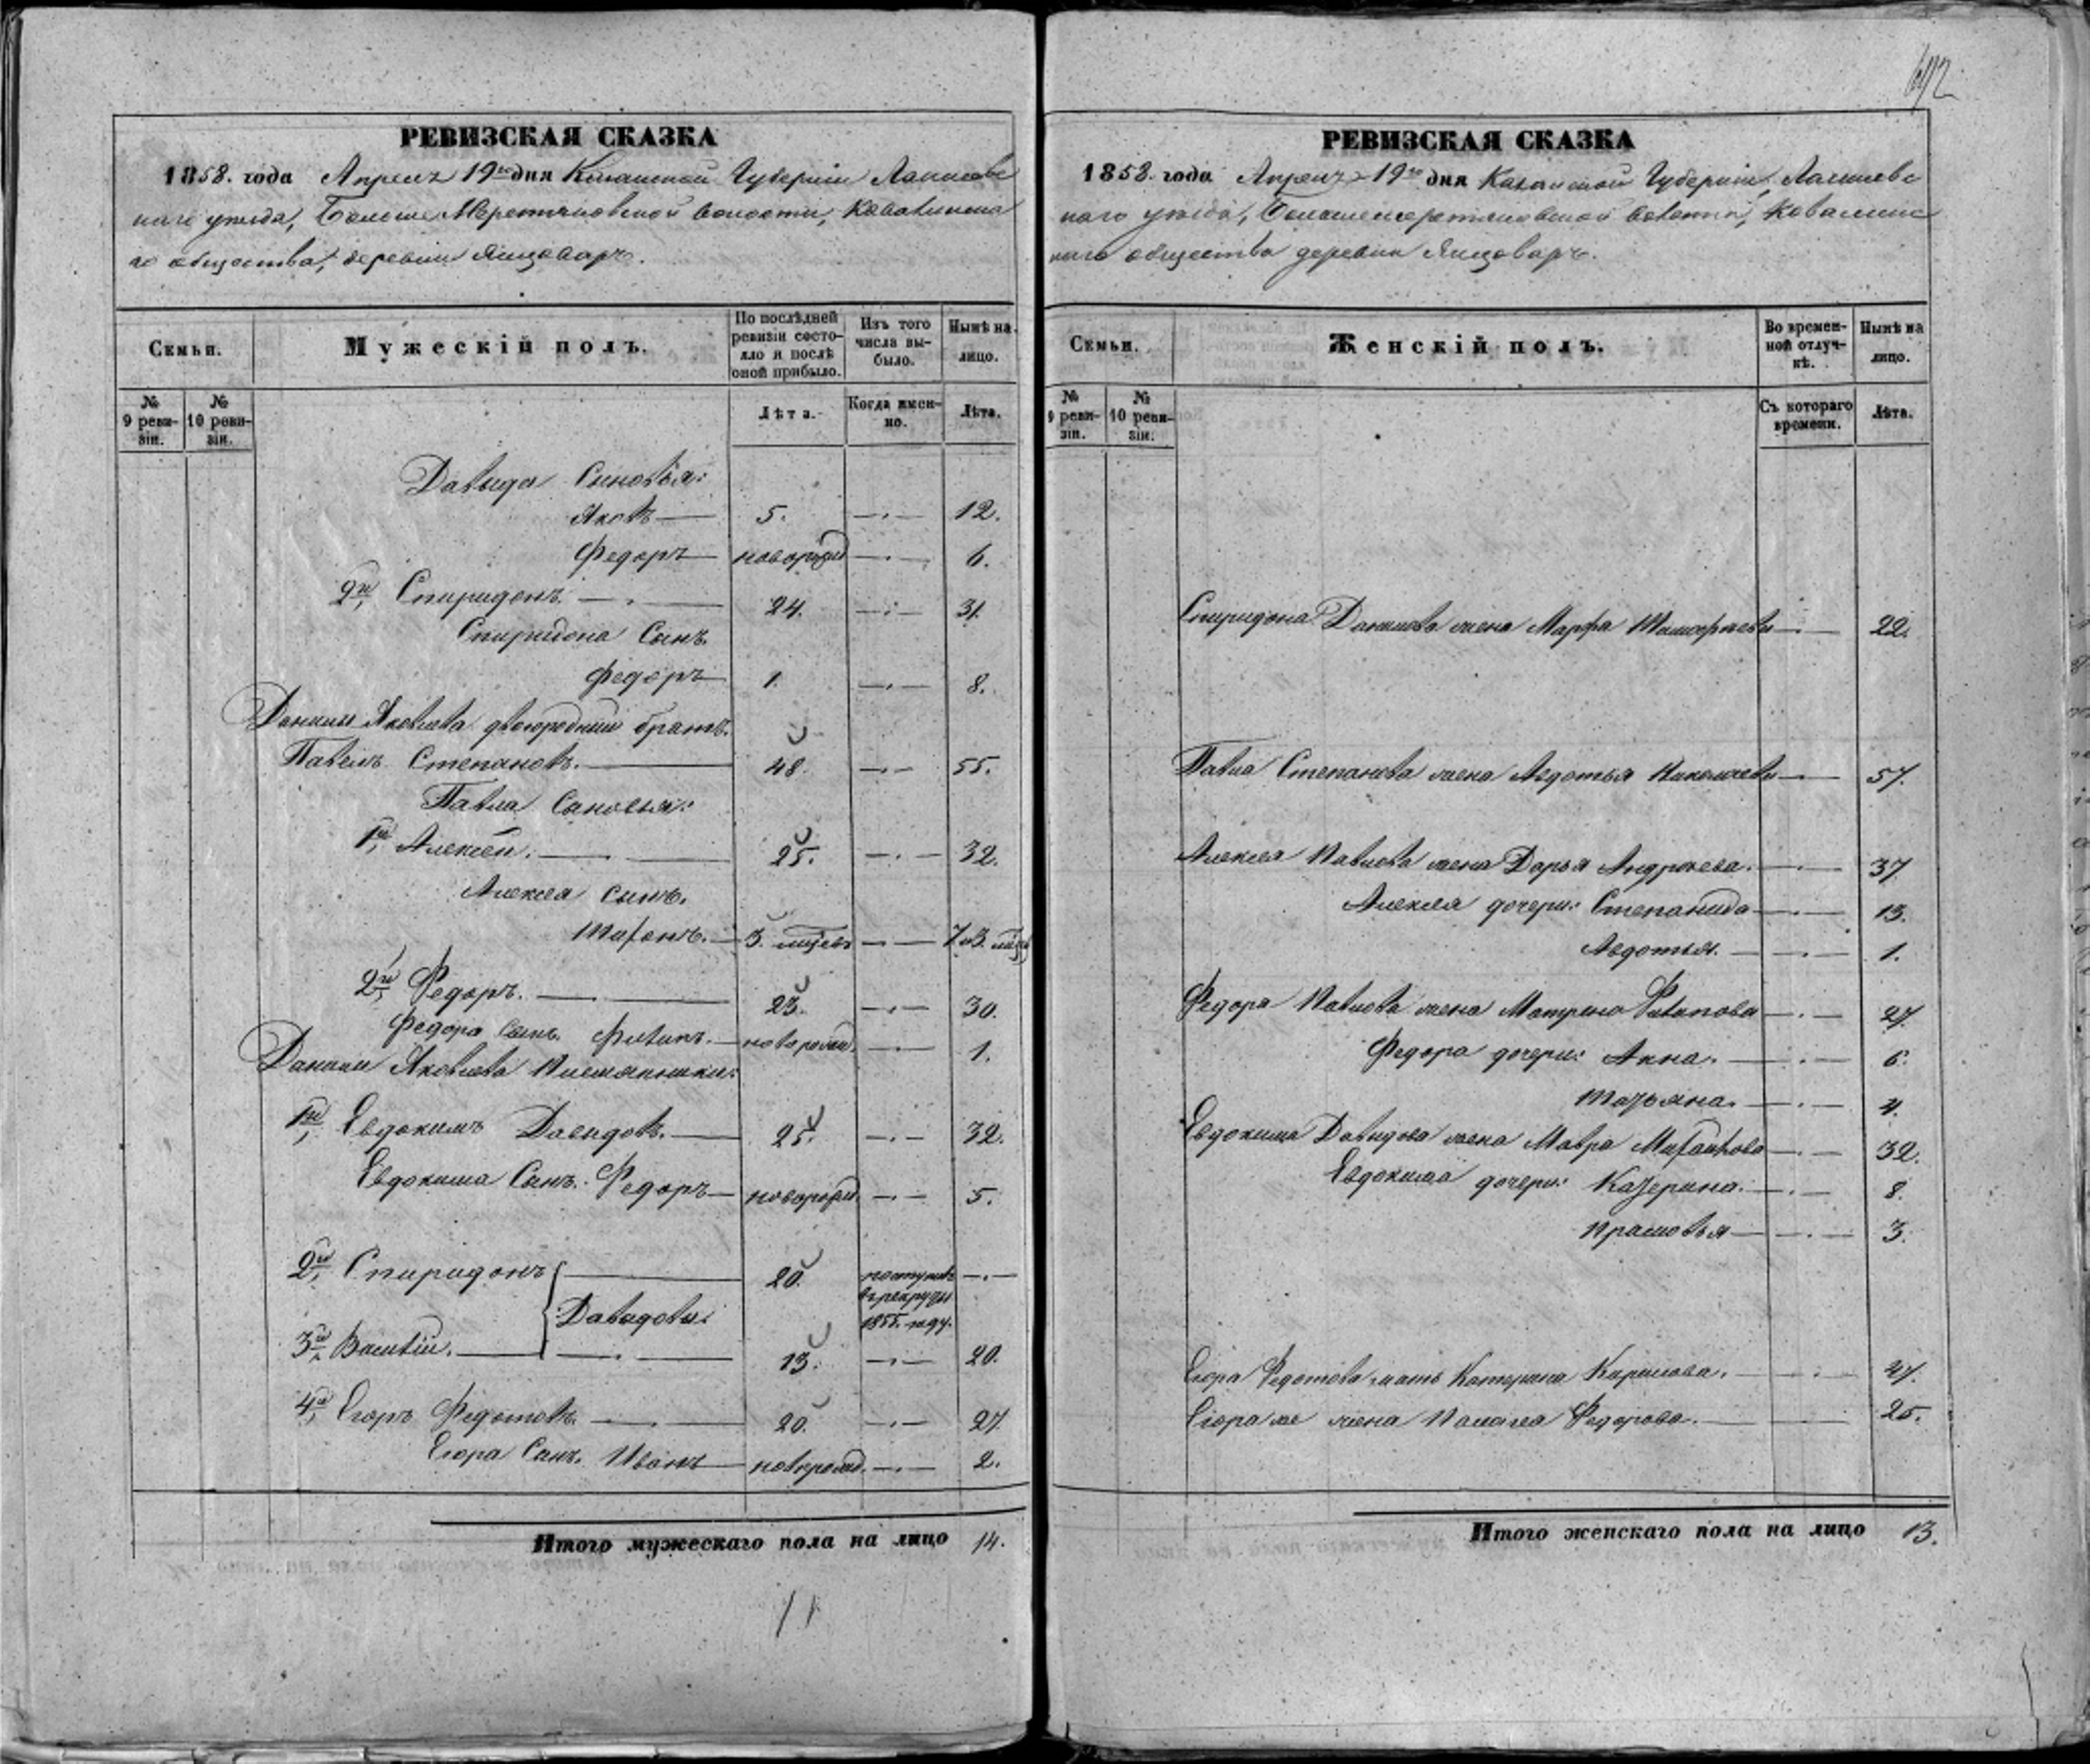 692
РЕВИЗСКАЯ СКАЗКА
1858. года Апреля 19го дня Казанской Губернии Лаишевс
каго уезда, Больше Меретяковской волости, Ковалинска
го общества, деревни Янцоваръ.
Семьи.
Мужескій полъ.
По послѣдней ревизіи состояло и послѣ оной прибыло.
Изъ того числа выбыло.
Нынѣ на лицо.
№ 9 ревизіи.
№ 10 ревизіи.
Лѣта.
Когда именно.
Лѣта.
Давыда Сыновья:
Яковъ — 5. — 12.
Федоръ — новорожд — 6.
2й, Спиридонъ. — 24. — 31.
Спиридона Сынъ.
Федоръ — 1. — 8.
Данилы Яковлева двоюродный братъ.
Павелъ Степановъ. — 48. — 55.
Павла Сыновья:
1й, Алексей. — 25. — 32.
Алексея сынъ.
Тихонъ. — 3. месяцъ — 7 и 3. мес
2й, Федоръ. — 23. — 30.
Федора сынъ. Филипъ. — новорожд. — 1.
Данилы Яковлева Племянники:
1й, Евдокимъ Давыдовъ. — 25. — 32.
Евдокима Сынъ. Федоръ — новорожд. — 5.
2й, Спиридонъ — 20. поступилъ в рекруты 1855. году. —
Давыдовы.
3й, Василий. — 13. — 20.
4й, Егоръ Федотовъ. — 20. — 27.
Егора Сынъ. Иванъ — новорожд. — 2.
Итого мужескаго пола на лицо 14.
РЕВИЗСКАЯ СКАЗКА
1858. года Апреля 19го дня Казанской Губернии, Лаишевс
каго уезда, Большемеретяковской волости, Ковалинс
каго общества деревни Янцоваръ.
Семьи.
Женскій полъ.
Во временной отлучкѣ.
Нынѣ на лицо.
№ 9 ревизіи.
№ 10 ревизіи.
Съ котораго времени.
Лѣта.
Спиридона Данилова жена Марфа Тимофеева — 22.
Павла Степанова жена Авдотья Николаева — 57.
Алексея Павлова жена Дарья Андреева. — 37
Алексея дочери: Степанида — 13.
Авдотья. — 1.
Федора Павлова жена Матрена Филипова — 27.
Федора дочери: Анна. — 6.
Татьяна. — 4.
Евдокима Давыдова жена Мавра Михайлова — 32.
Евдокима дочери: Катерина. — 8.
Прасковья — 3.
Егора Федотова мать Катерина Кирилова. — 47.
Егора же жена Пелагея Федорова. — 25.
Итого женскаго пола на лицо 13.